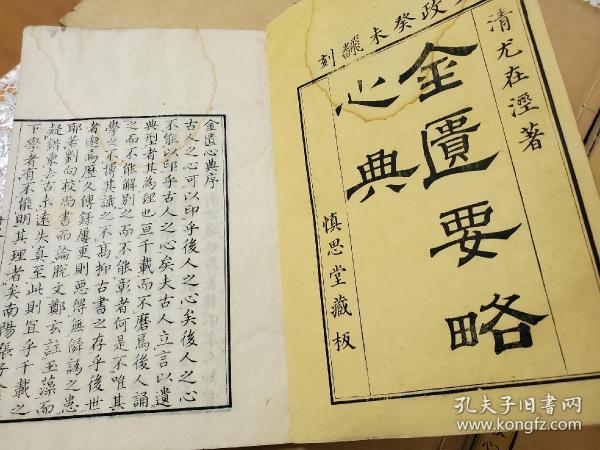 政癸未飜刻
清尤在涇著
金匱要略
心典
慎思堂藏板
金匱心典序
古人之心可以印乎後人之心矣後人之心
不能以印乎古人之心矣夫古人立言以遺
典型者其為理也亘千載而不磨為後人誦
之而不能解別之而不能彰者何是不唯其
學之不博其識之不高抑古書之存乎後世
者歟為歷久傳錄屢更則悉得無舛譌之患
耶若劉向校尚書而論脫文鄭玄註玉藻而
疑錯東去古未遠失真至此則宜乎千載之
下學者有不能明其理者矣南陽張子
孔夫子旧书网
www.kongfz.com